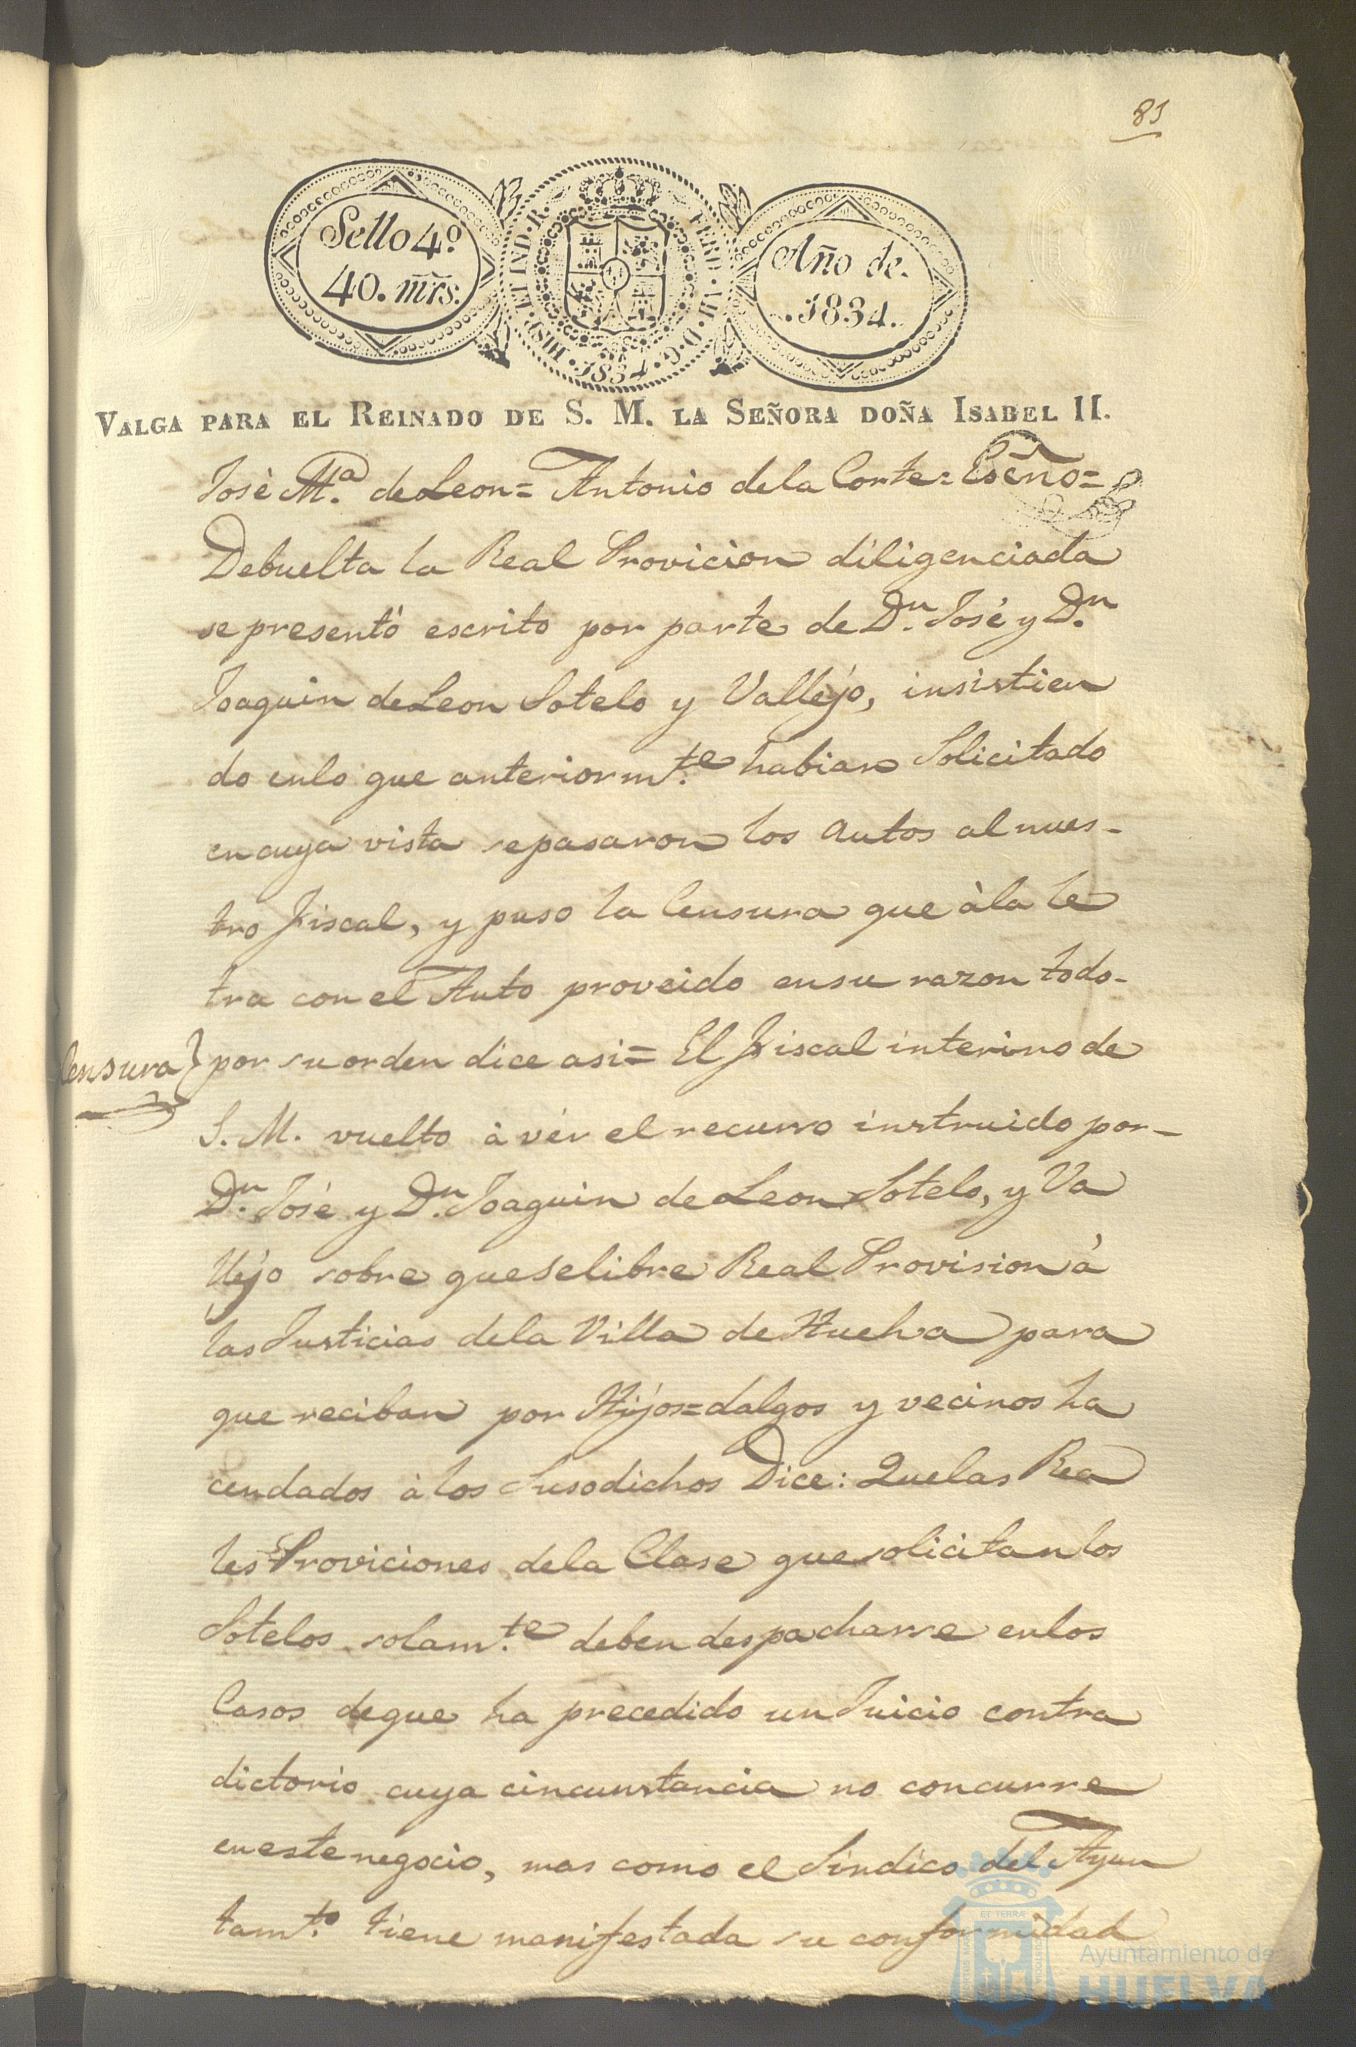 81
Sello 4º
40. mrs.
HISP. ET IND. R. FERD. VII. D. G. 1834
Año de
.1834.
VALGA PARA EL REINADO DE S. M. LA SEÑORA DOÑA ISABEL II.
José Mª. de Leon= Antonio dela Corte= Esc̃ño=
Debuelta la Real Provicion diligenciada
se presentó escrito por parte de Dn. José y Dn.
Joaquin de Leon Sotelo y Vallejo, insistien
do enlo que anteriormte. habian Solicitado
en cuya vista sepasaron los Autos al nues-
tro Fiscal, y puso la Censura que àla le
tra con el Auto proveido ensu razon todo-
Censura} por su orden dice asi= El Fiscal interino de
S. M. vuelto à vér el recurso instruido por-
Dn. José y Dn. Joaquin de Leon Sotelo, y Va
llejo sobre queselibre Real Provision à
las Justicias dela Villa de Huelva para
que reciban por Hijos=dalgos y vecinos ha
cendados à los Susodichos Dice: Quelas Rea
les Proviciones dela Clase que solicitan los
Sotelos solamte. deben despacharse enlos
Casos deque ha precedido un Juicio contra
dictorio cuya circunstancia no concurre
eneste negocio, mas como el Sindico del Ayun
tamto. tiene manifestada su conformidad
Ayuntamiento de
HUELVA